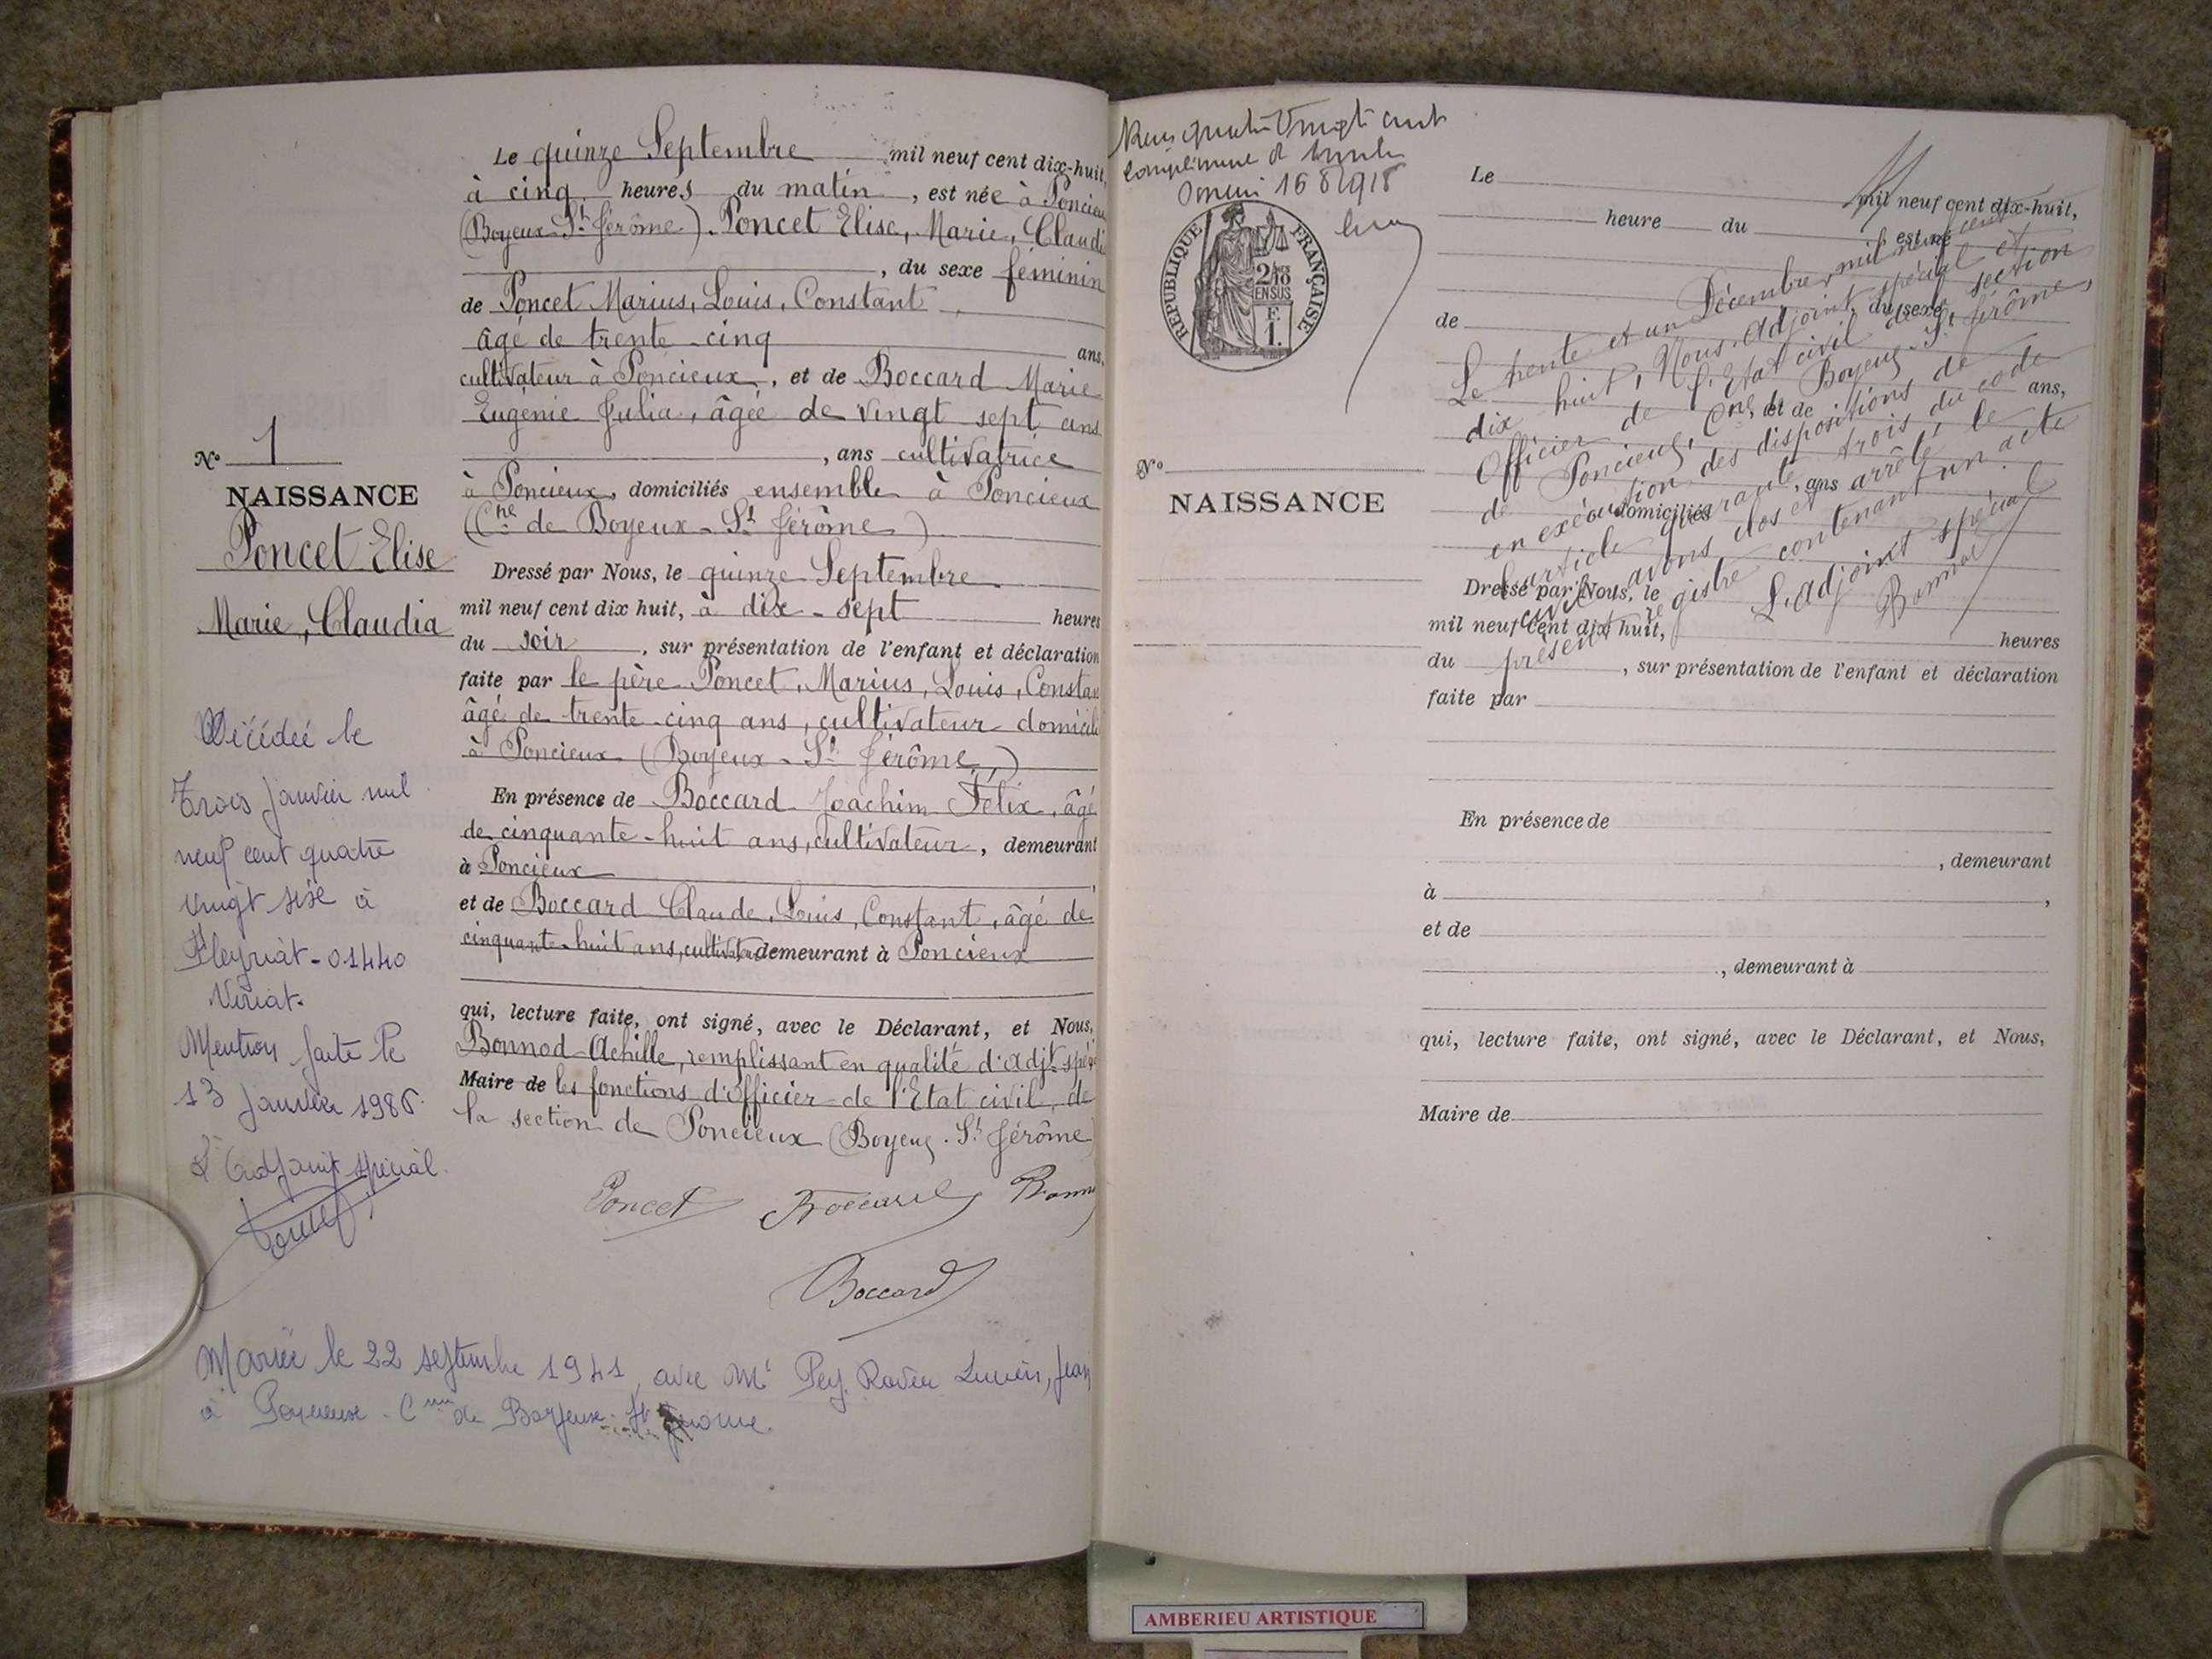 Le quinze Septembre mil neuf cent dix-huit,
à cinq heures du matin, est née à Poncieux
(Boyeux-St Jérôme). Poncet Elise, Marie, Claudi
, du sexe féminin
de Poncet Marius, Louis, Constant
âgé de trente-cinq ans,
cultivateur à Poncieux, et de Boccard Marie
Eugénie Julia, âgée de vingt sept ans
, ans cultivatrice
à Poncieux, domiciliés ensemble à Poncieux
(Cne de Boyeux-St Jérôme)
Dressé par Nous, le quinze Septembre
mil neuf cent dix huit, à dix-sept heures
du soir, sur présentation de l'enfant et déclaration
faite par le père Poncet, Marius, Louis, Constan
âgé de trente-cinq ans, cultivateur domicilié
à Poncieux (Boyeux-St Jérôme,)
En présence de Boccard Joachim Félix, âgé
de cinquante-huit ans, cultivateur, demeurant
à Poncieux,
et de Boccard Claude, Louis, Constant, âgé de
cinquante-huit ans, cultivateur demeurant à Poncieux
qui, lecture faite, ont signé, avec le Déclarant, et Nous,
Bonnod Achille, remplissant en qualité d'adjt spé
Maire de les fonctions d'officier de l'Etat civil, de
la section de Poncieux (Boyeux. St Jérôme)
Poncet Boccard Bonn
Boccard
No 1
NAISSANCE
Poncet Elise
Marie, Claudia
Décédée le
Trois janvier mil
neuf cent quatre
vingt six à
Fleyriat-01440
Viriat.
Mention faite le
13 Janvier 1986.
L'adjoint spécial.
Mariée le 22 septembre 1941, avec Mr Pey-Ravier Lucien, Jean
à Cne de Boyeux-St Jérôme.
complément de
16 8 1918
REPUBLIQUE FRANÇAISE
2/10
EN SUS
F.
1.
No
NAISSANCE
Le mil neuf cent dix-huit,
heure du , est né
, du sexe
de
ans,
, et de
, ans
domiciliés
Le trente et un Décembre mil neuf cent
dix huit, Nous, Adjoint spécial et
Officier de l'Etat civil de la section
de Poncieux, Cne de Boyeux-St Jérôme,
en exécution des dispositions de
l'article quarante trois du code
civil avons clos et arrêté le
présent registre contenant un acte
L'adjoint spécial
Bonnod
Dressé par Nous, le
mil neuf cent dix huit, heures
du , sur présentation de l'enfant et déclaration
faite par
En présence de
, demeurant
à ,
et de
, demeurant à
qui, lecture faite, ont signé, avec le Déclarant, et Nous,
Maire de
AMBERIEU ARTISTIQUE